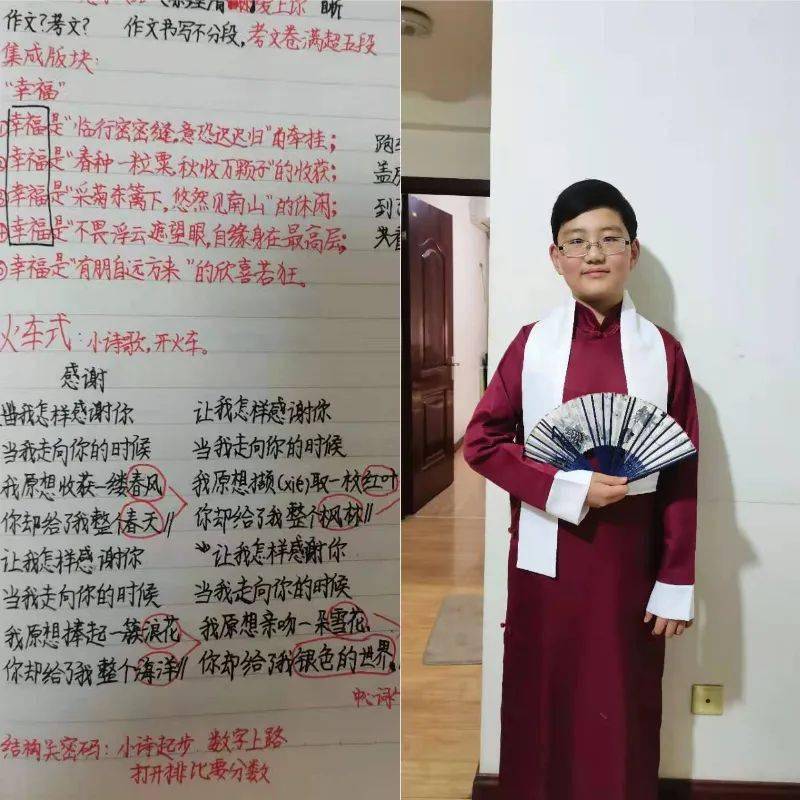 爱上你 晰
作文?考文? 作文书写不分段,考文卷满超五段
集成版块:
“幸福”
幸福是“临行密密缝,意恐迟迟归”的牵挂;
幸福是“春种一粒粟,秋收万颗子”的收获;
幸福是“采菊东篱下,悠然见南山”的休闲;
幸福是“不畏浮云遮望眼,自缘身在最高层;
⑤幸福是“有朋自远方来”的欣喜若狂。
火车式:小诗歌,开火车。
感谢
让我怎样感谢你
当我走向你的时候
我原想收获一缕春风
你却给了我整个春天//
让我怎样感谢你
当我走向你的时候
我原想捧起一簇浪花
你却给了我整个海洋//
让我怎样感谢你
当我走向你的时候
我原想撷(xié)取一枚红叶
你却给了我整个枫林//
让我怎样感谢你
当我走向你的时候
我原想亲吻一朵雪花
你却给了我银色的世界。
结构关密码:小诗起步 数字上路
打开排比要分数